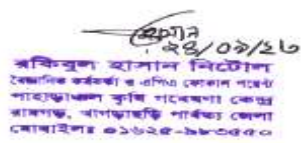 ২৪/০৯/২৩
রকিবুল হাসান নিটোল
বৈজ্ঞানিক কর্মকর্তা ও এপিএ ফোকাল পয়েন্ট
পাহাড়াঞ্চল কৃষি গবেষণা কেন্দ্র
রামগড়, খাগড়াছড়ি পার্বত্য জেলা
মোবাইলঃ ০১৬২৪-৯৮৩৫৫০